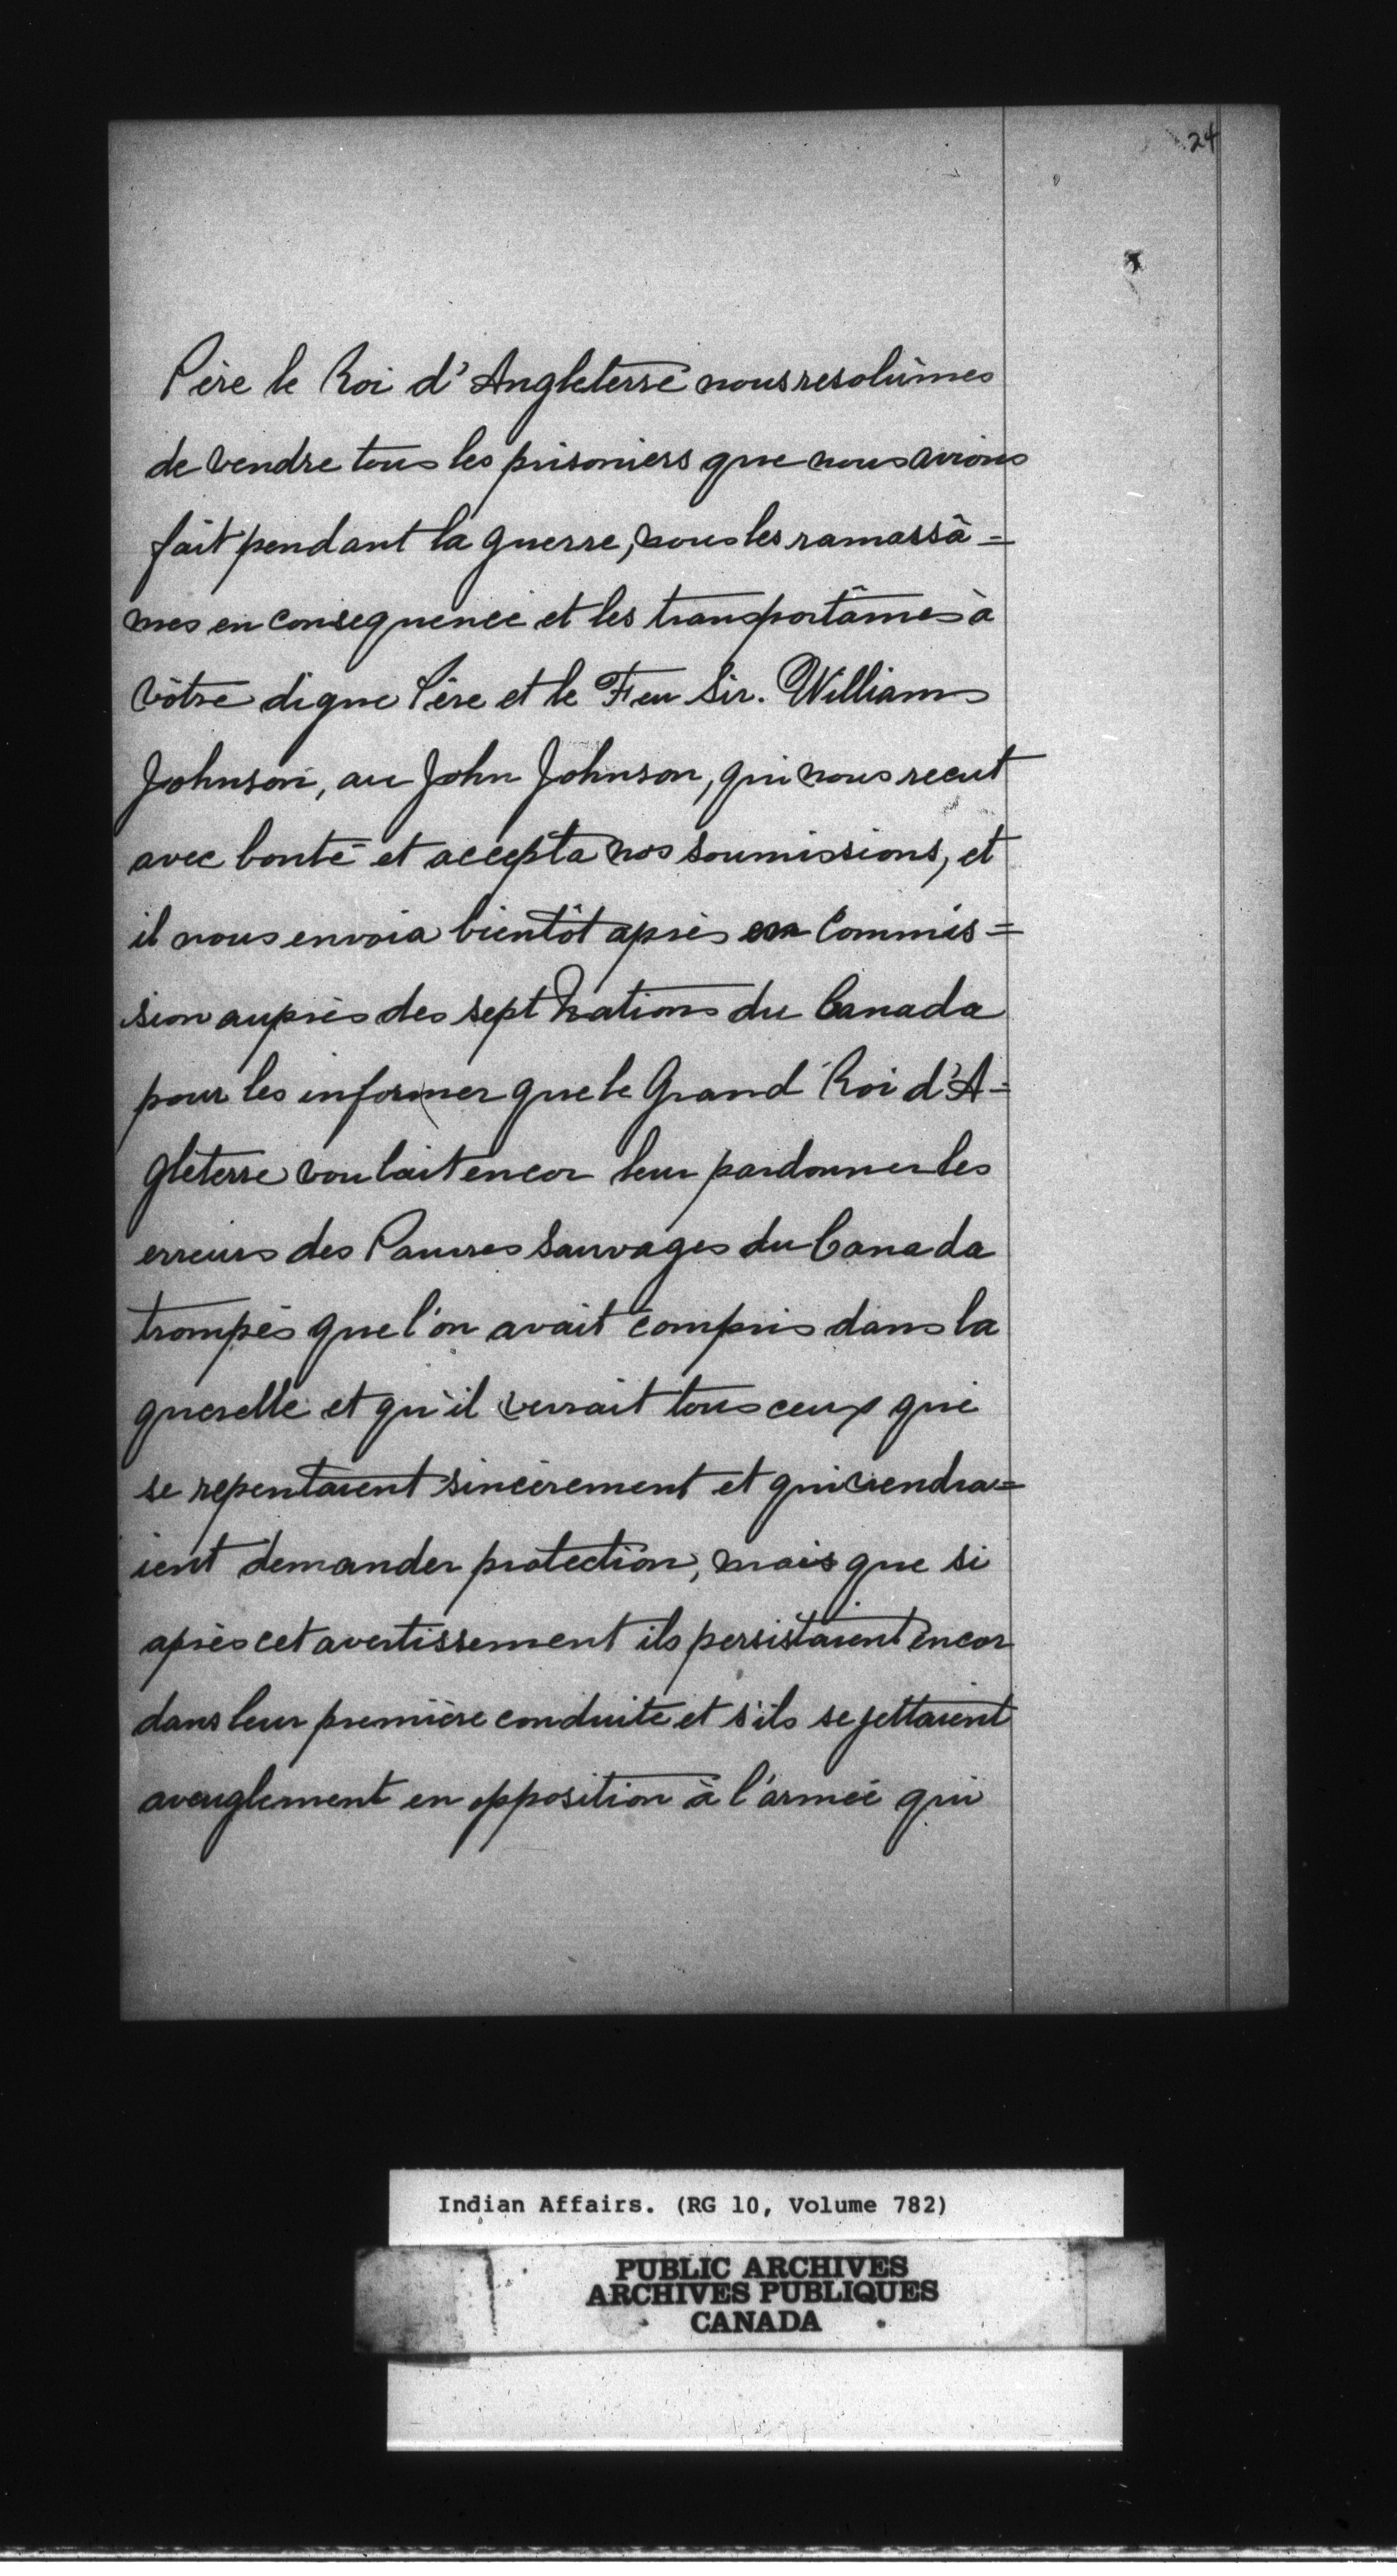 24
Père le Roi d'Angleterre nous resolûmes
de vendre tous les prisoniers que nous avions
fait pendant la guerre, nous les ramassâ=
mes en consequence et les transportâmes à
vôtre digne Père et le Feu Sir. William
Johnson, au John Johnson, qui nous recut
avec bonté et accepta nos soumissions, et
il nous envoia bientôt après en Commis=
sion auprès des sept Nations du Canada
pour les informer que le Grand Roi d'A=
gleterre voulait encor leur pardonner les
erreurs des Pauvres Sauvages du Canada
trompés que l'on avait compris dans la
querelle et qu'il verrait tous ceux qui
se repentaient sincèrement et qui viendra=
ient demander protection, mais que si
après cet avertissement ils persistaient encor
dans leur première conduite et s'ils se jettaient
aveuglement en opposition à l'armée qui
Indian Affairs. (RG 10, Volume 782)
PUBLIC ARCHIVES
ARCHIVES PUBLIQUES
CANADA